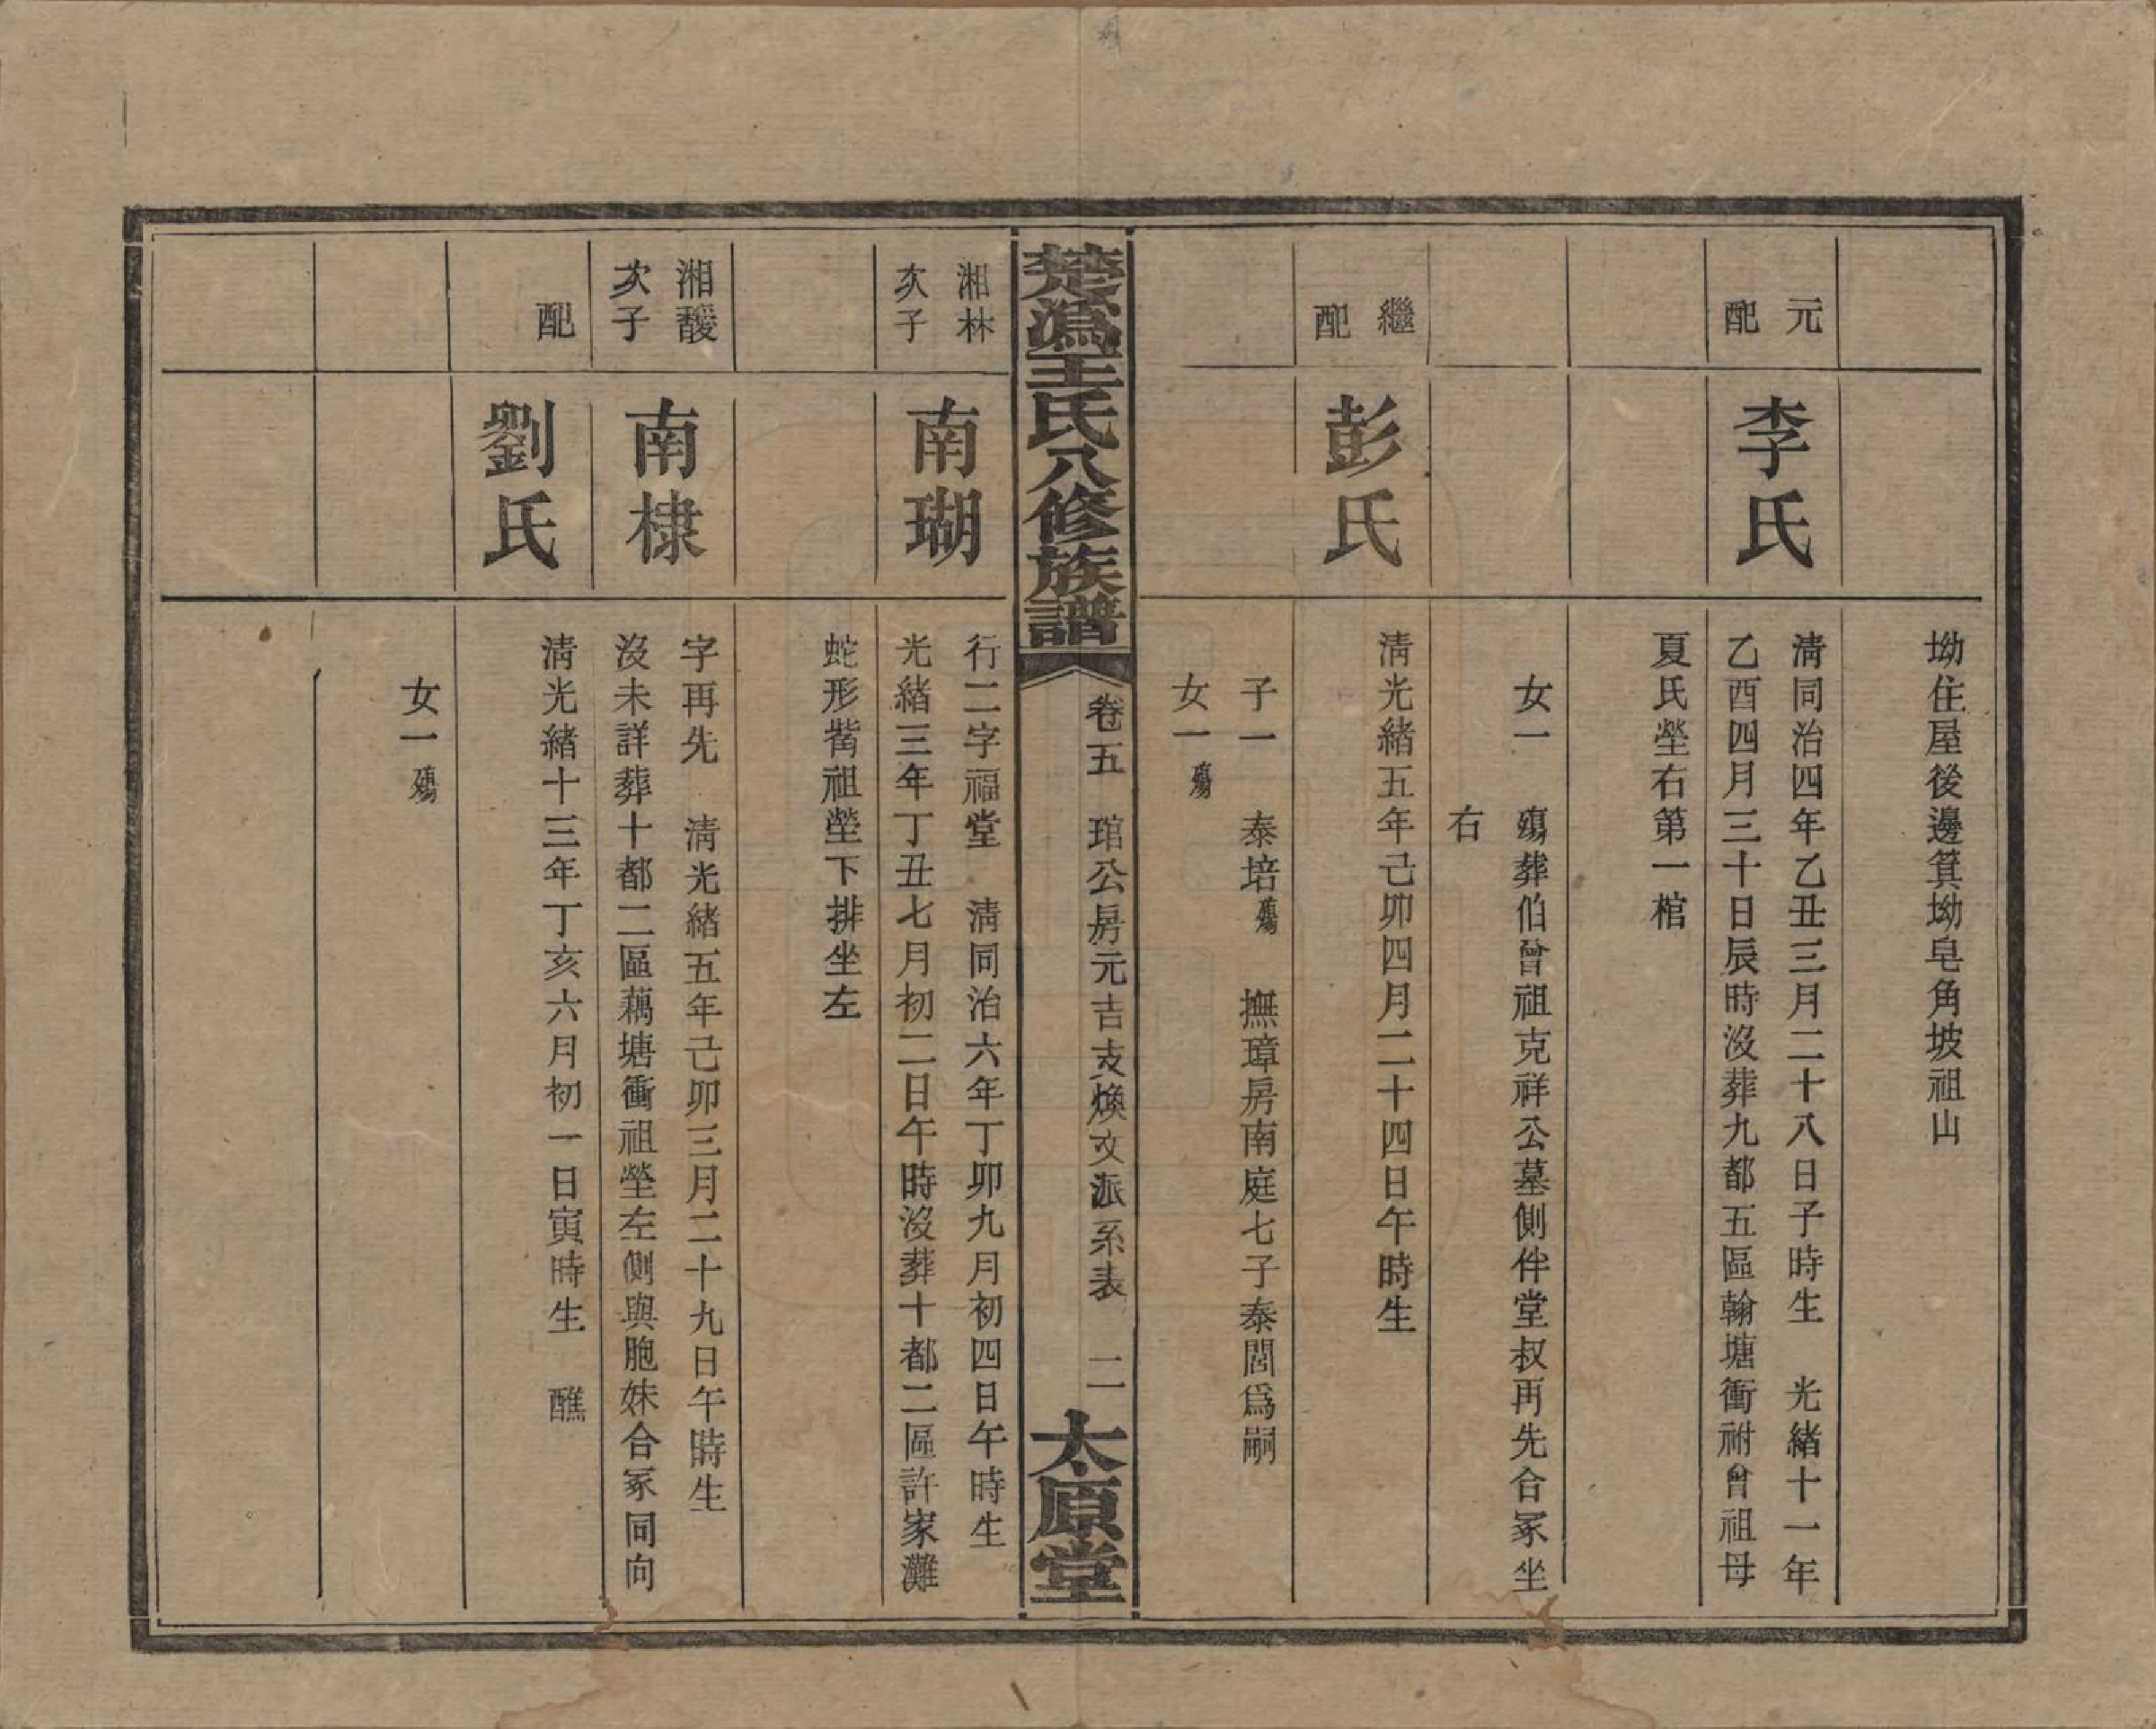 坳住屋後邊箕坳皂角坡祖山
元配
李氏
淸同治四年乙丑三月二十八日子時生　光緒十一年
乙酉四月三十日辰時沒葬九都五區翰塘衝祔曾祖母
夏氏塋右第一棺
女一　殤葬伯曾祖克祥公墓側伴堂叔再先合冢坐
右
繼配
彭氏
淸光緒五年己卯四月二十四日午時生
子一　泰培殤　撫璋房南庭七子泰閣爲嗣
女一殤
楚溈王氏八修族譜
卷五　琯公房元吉支煥文派系表　二
太原堂
湘林次子
南瑚
行二字福堂　淸同治六年丁卯九月初四日午時生
光緒三年丁丑七月初二日午時沒葬十都二區許家灘
蛇形嵛祖塋下排坐左
湘馥次子
南棣
字再先　淸光緒五年己卯三月二十九日午時生
沒未詳葬十都二區藕塘衝祖塋左側與胞妹合冢同向
配
劉氏
淸光緒十三年丁亥六月初一日寅時生　醮
女一殤